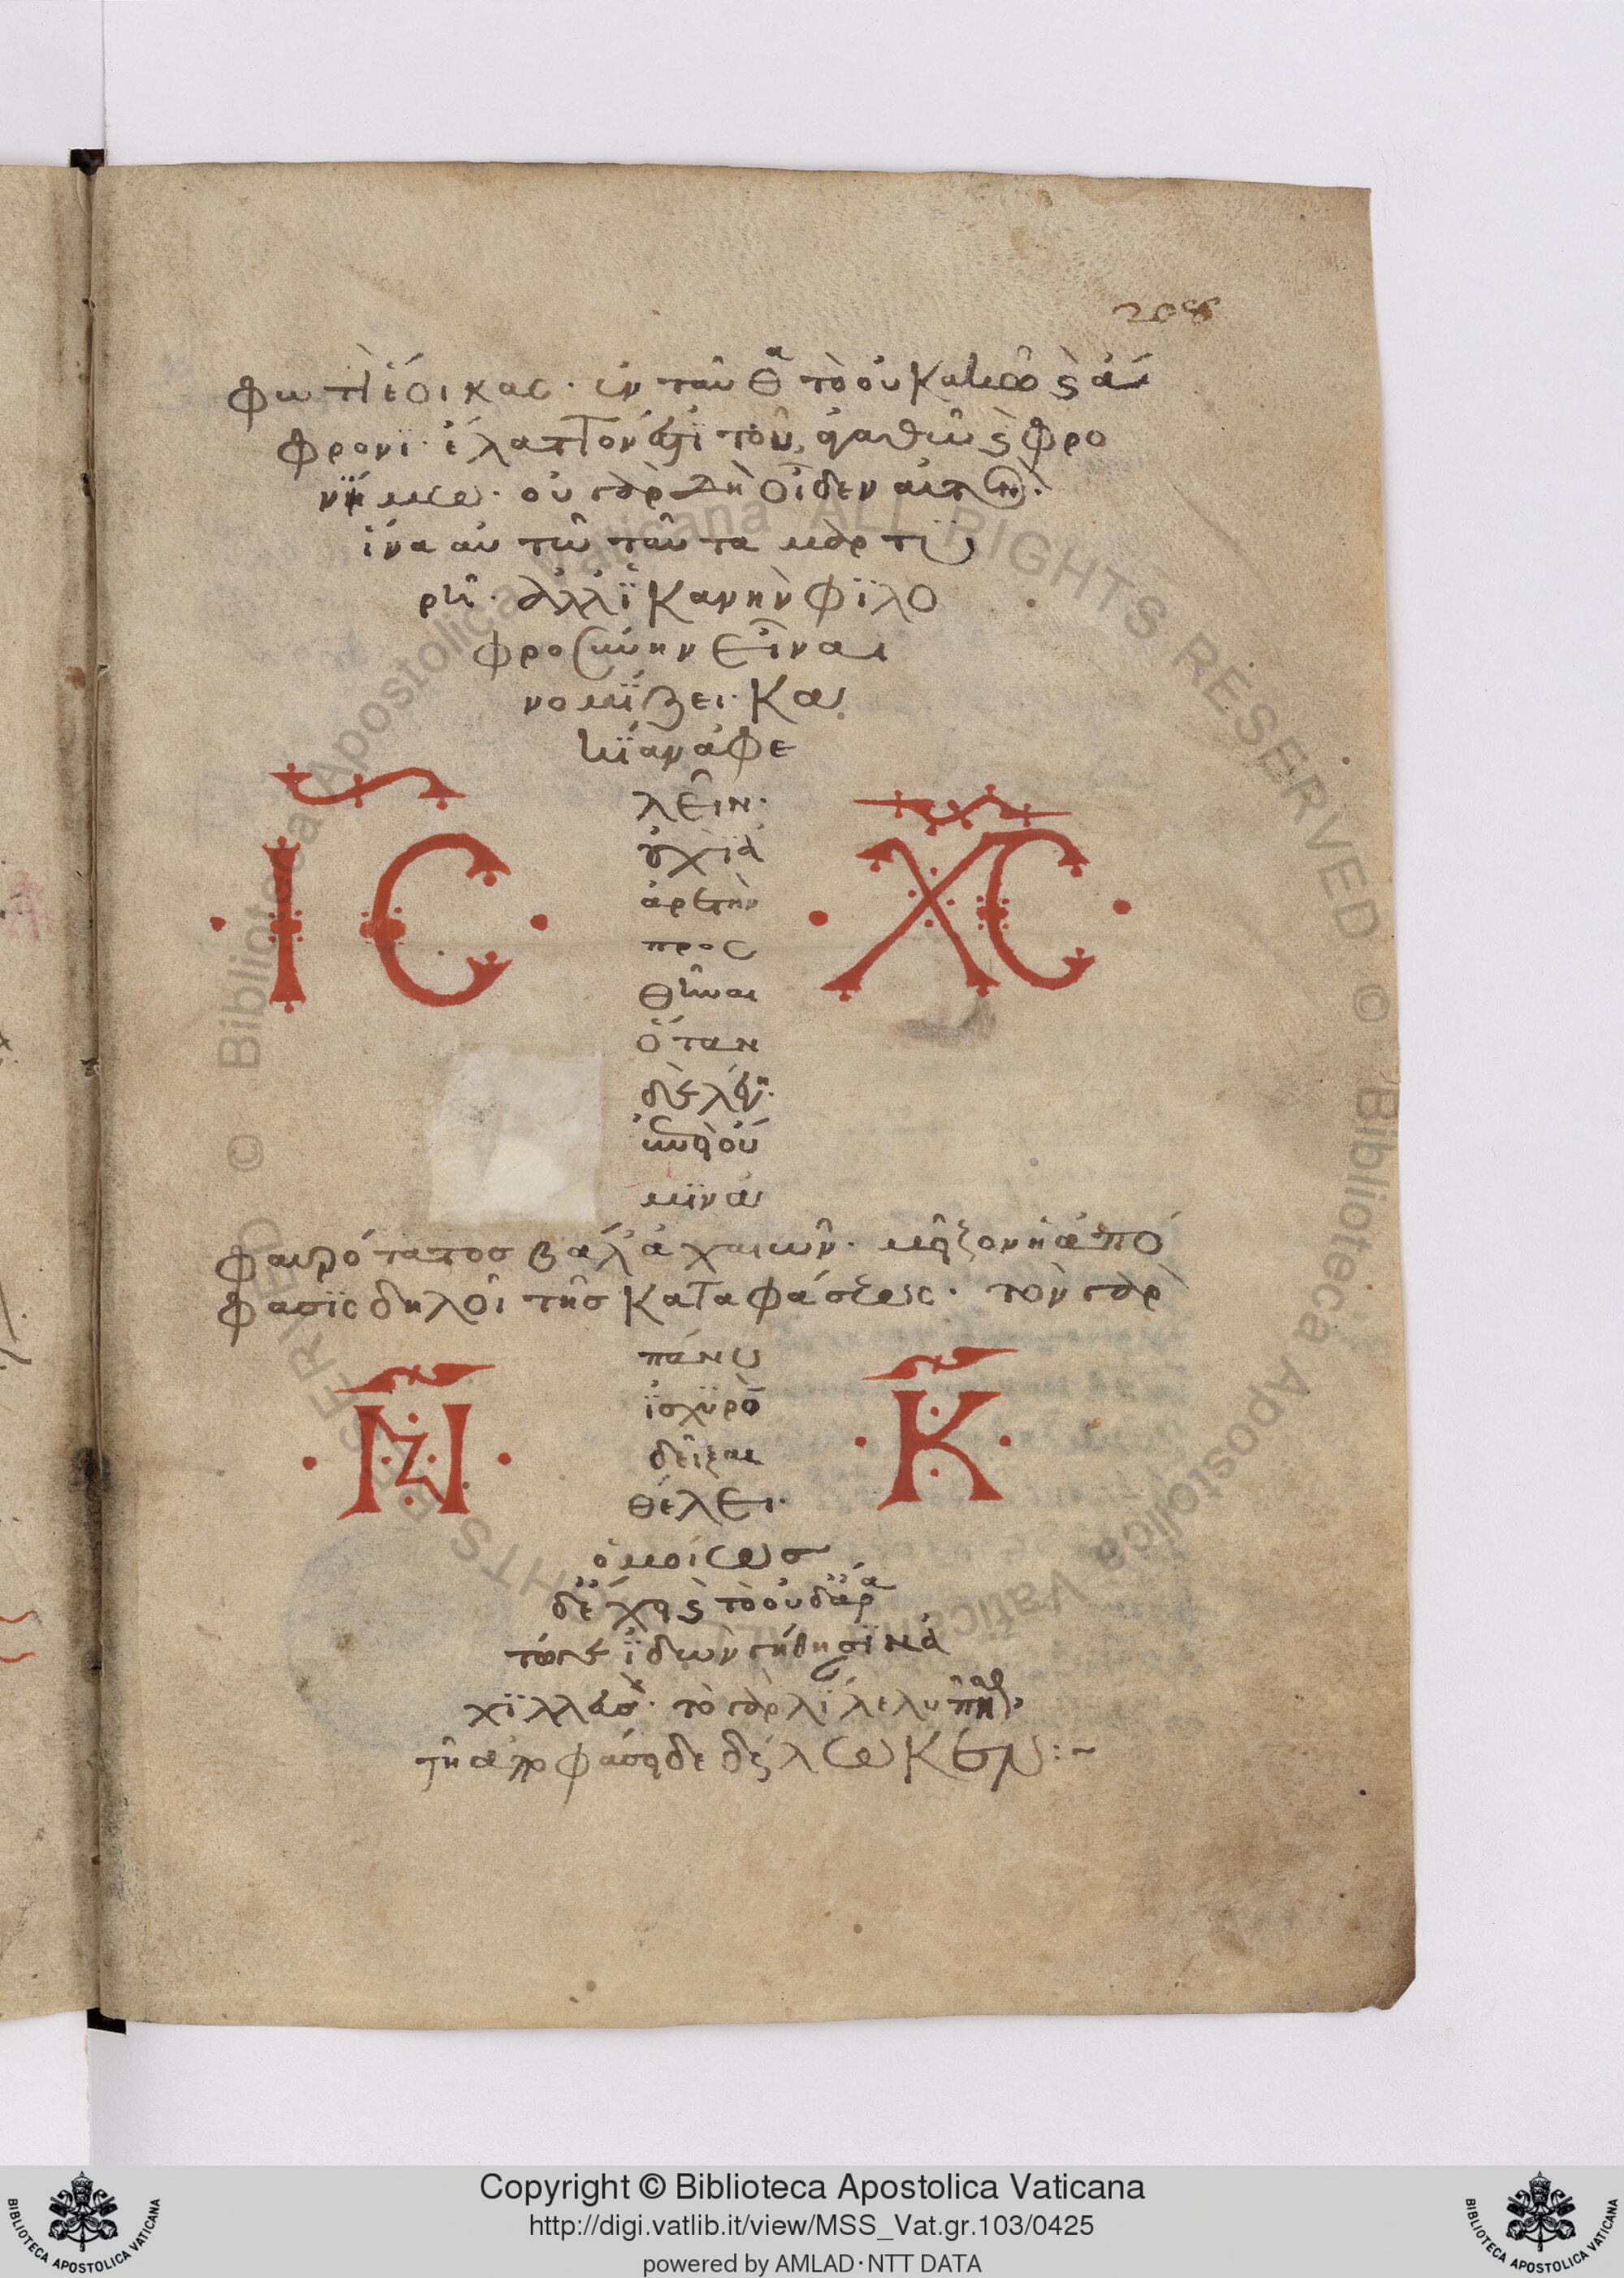 208
φωτὶ ἔοικας· ἐν ταῦθα τὸ οὐ κακῶς ἀν
φρονϊ· ἔλαττον ἐστὶ τοῦ ἀγαθῶς φρο
οὐ γὰρ οἶδεν
ἵνα αὐτῶ ταῦτα μαρτυ
ρῆ· ἀλλ ϊκανὴν φϊλο
φροσύνην εἶναι
νομΐζει· κα
κΐαν ἀφε
λεῖν·
ΙC ΧC
οὐχὶ δ
ἀρετὴν
προσ
θεῖναι
ὅταν
δὲ λέγη·
οὐ
μὶν ἀ
φαυρότατος βάλ ἀχαιῶν· μεῖζον ἡ ἀπό
φασϊς δηλοῖ τῆς καταφάσεως· τὸν γὰρ
ΝΙ Κ
πάνυ
ϊσχυρὸν
δεῖξαι
θέλει·
ὁμοίως
δὲ ἔχει τὸ οὐδ ἄρα
τόγε ϊδὼν γήθησϊν ἀ
χϊλλεύς· τὸ γὰρ λΐ
τῆ ἀποφάσει δεδήλωκεν:~
© Biblioteca Apostolica Vaticana ALL RIGHTS RESERVED © Biblioteca Apostolica Vaticana ALL RIGHTS RESERVED
Copyright © Biblioteca Apostolica Vaticana
http://digi.vatlib.it/view/MSS_Vat.gr.103/0425
powered by AMLAD·NTT DATA
BIBLIOTECA APOSTOLICA VATICANA
BIBLIOTECA APOSTOLICA VATICANA